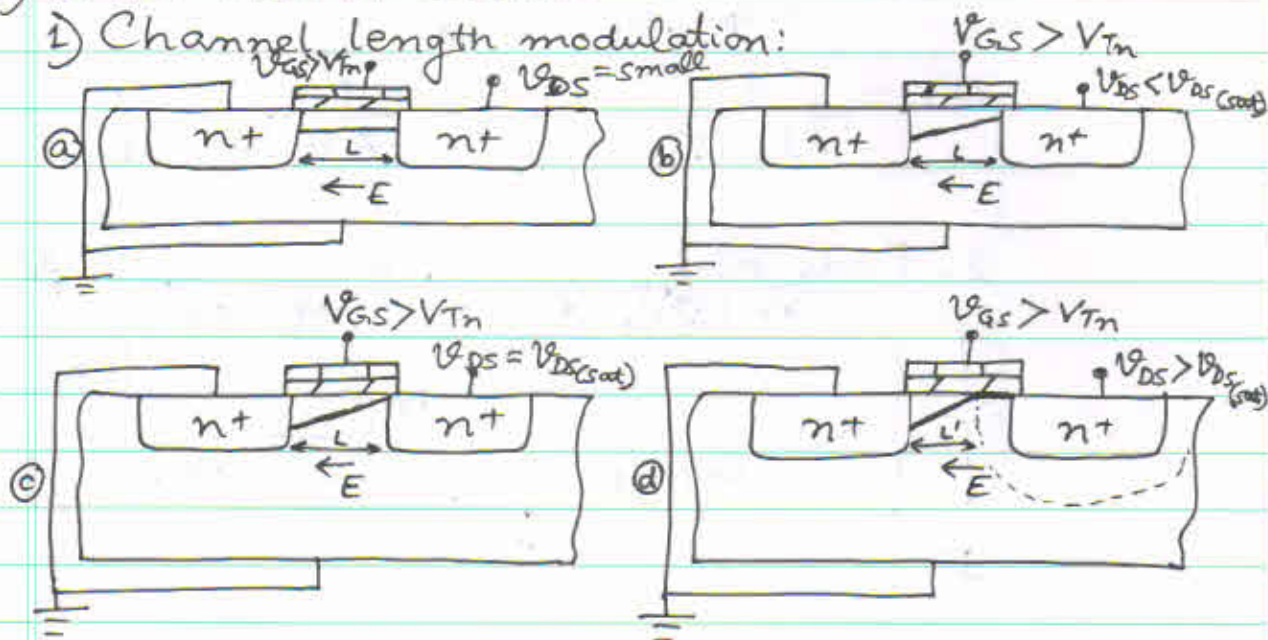 1) Channel length modulation:
VGS>VTn
VDS = small
ⓐ
n+
L
n+
← E
VGS > VTn
VDS < VDS(sat)
ⓑ
n+
L
n+
← E
VGS > VTn
VDS = VDS(sat)
ⓒ
n+
L
n+
← E
VGS > VTn
VDS > VDS(sat)
ⓓ
n+
L'
n+
← E